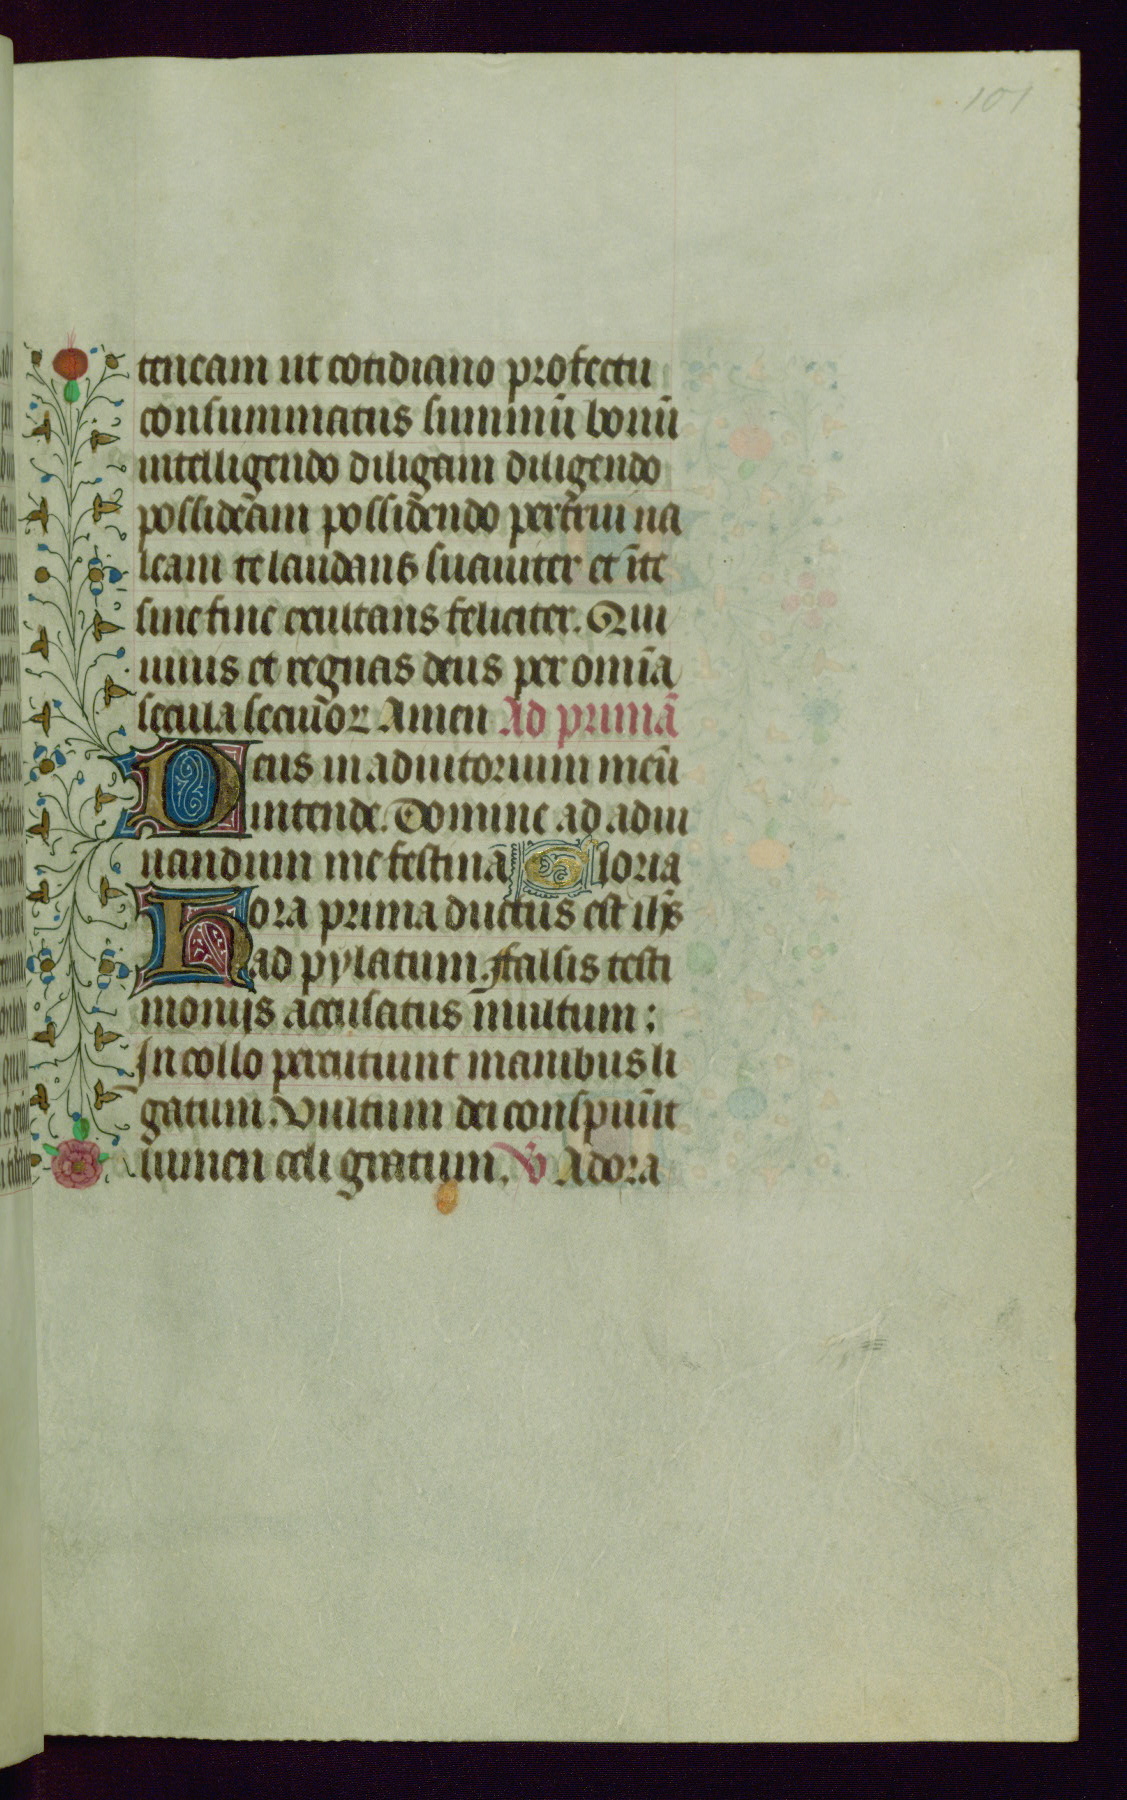 101
teneam ut cotidiano profectu
consummatus summū bonū
intelligendo diligam diligendo
possideam possidendo
leam te laudans suaviter et
sine fine exultans feliciter. Qui
vivis et regnas deus per omīa
secula seculor Amen Ad primā
Deus in adiutorium meū
intende. Domine ad adiu
uandum me festina Gloria
Hora prima ductus est ihs
ad pylatum. ffalsis testi
moniis accusatus multum:
In collo percutiunt manibus li
gatum. Vultum dei conspuūt
lumen celi gratum. V Adora